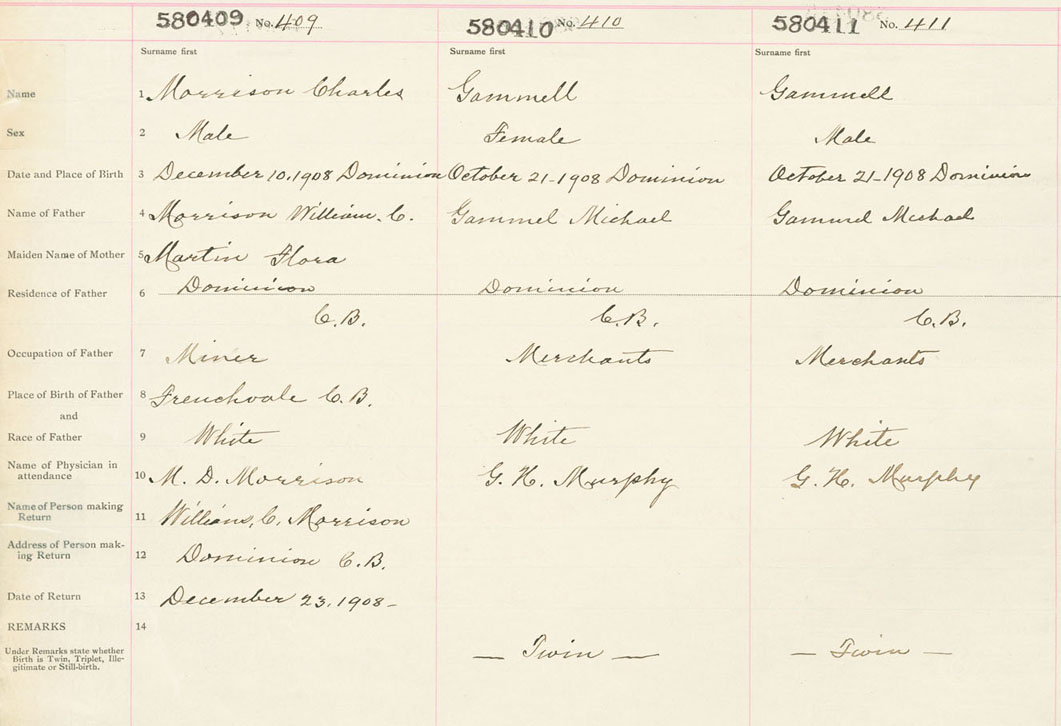 580409 No. 409 580410 No. 410 580411 No. 411
Surname first Surname first Surname first
Name 1 Morrison Charles Gammell Gammell
Sex 2 Male Female Male
Date and Place of Birth 3 December 10, 1908 Dominion October 21-1908 Dominion October 21-1908 Dominion
Name of Father 4 Morrison William. C. Gammel Michael Gammel Michael
Maiden Name of Mother 5 Martin Flora
Residence of Father 6 Dominion Dominion Dominion
C.B. C.B. C.B.
Occupation of Father 7 Miner Merchants Merchants
Place of Birth of Father 8 Frenchvale C.B.
and
Race of Father 9 White White White
Name of Physician in
attendance 10 M. D. Morrison G. H. Murphy G. H. Murphy
Name of Person making
Return 11 William, C. Morrison
Address of Person mak-
ing Return 12 Dominion C.B.
Date of Return 13 December 23, 1908-
REMARKS 14
Under Remarks state whether
Birth is Twin, Triplet, Ille-
gitimate or Still-birth. — Twin — — Twin —